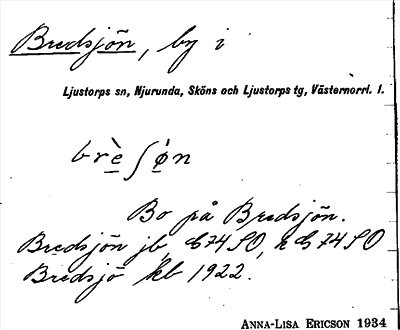 Bredsjön, by i
Ljustorps sn, Njurunda, Sköns och Ljustorps tg, Västernorrl. l.
brè̱ʃø̱̀n
Bo på Bredsjön.
Bredsjön jb, G74SO, k G74SO
Bredsjö kb 1922.
ANNA-LISA ERICSON 1934